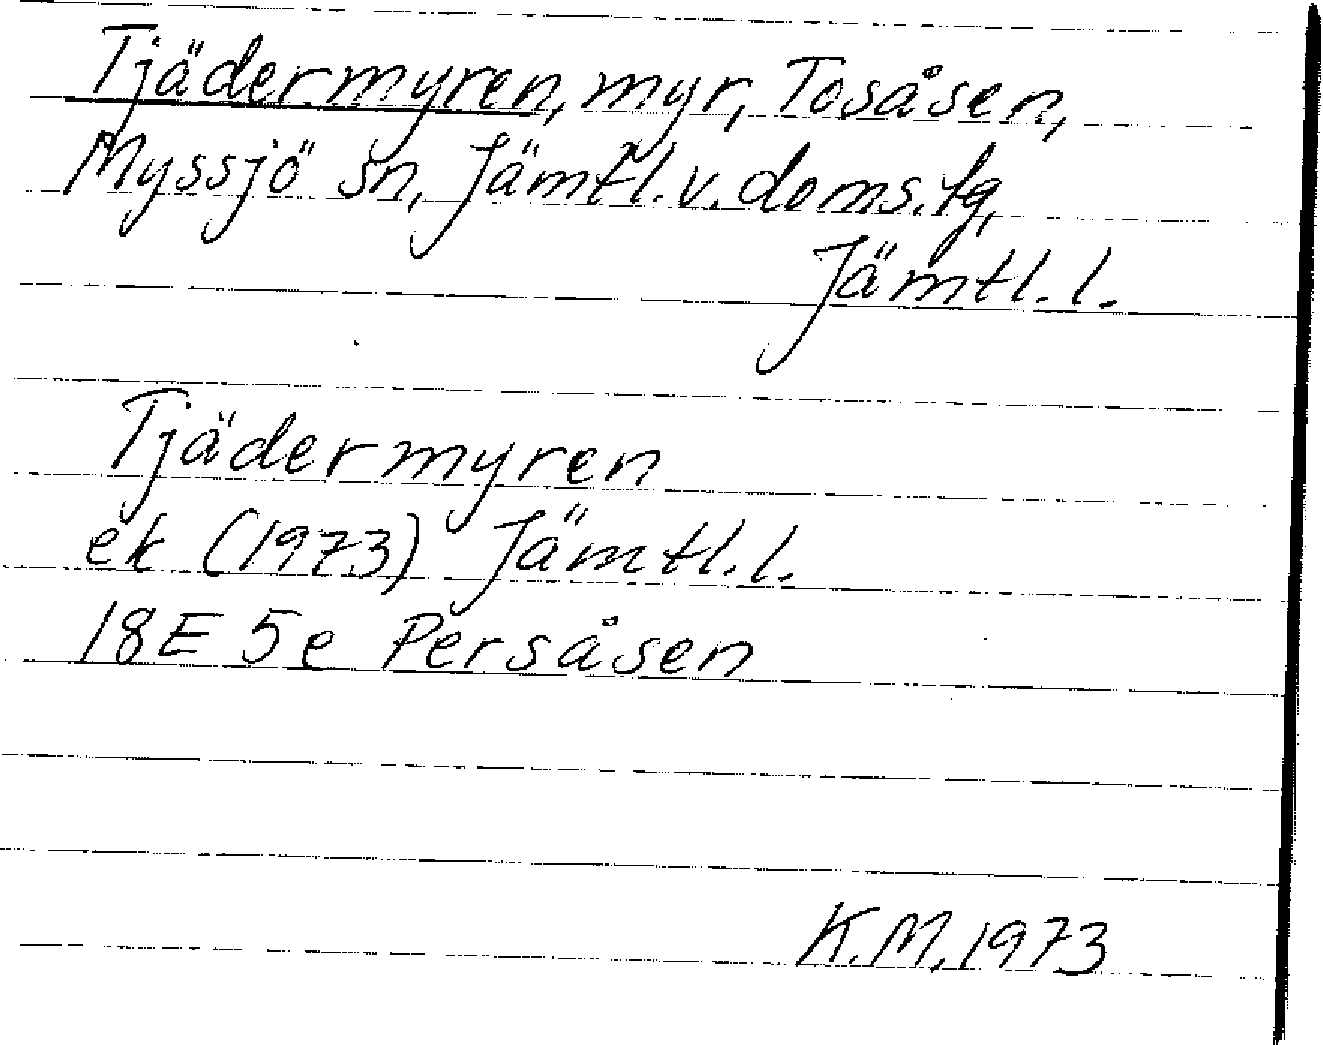 Tjädermyren, myr, Tosåsen,
Myssjö sn, Jämtl.v.doms.tg,
Jämtl.l.
Tjädermyren
ek (1973) Jämtl.l.
18E 5e Persåsen
K.M.1973